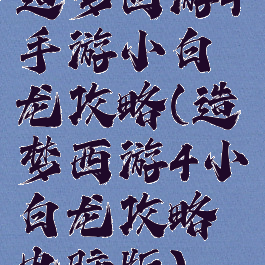 造梦西游4
手游小白
龙攻略(造
梦西游4小
白龙攻略
电脑版)